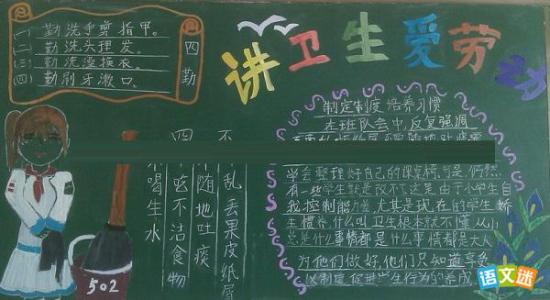 讲卫生爱劳动
四勤
(一) 勤洗手剪指甲。
(二) 勤洗头理发。
(三) 勤洗澡换衣。
(四) 勤刷牙漱口。
不乱丢果皮纸屑
不随地吐痰
四不吃不洁食物
不喝生水
502
制定制度 培养习惯
在班队会中,反复强调
学会整理好自己的课桌椅
有一些学生就是改不了这
我控制能力差,尤其是现在的学生娇
生惯养,什么叫卫生根本就不懂,从小
什么事情都是大人
为他们做好,他们只知道享受
促进卫生行为的养成
语文迷